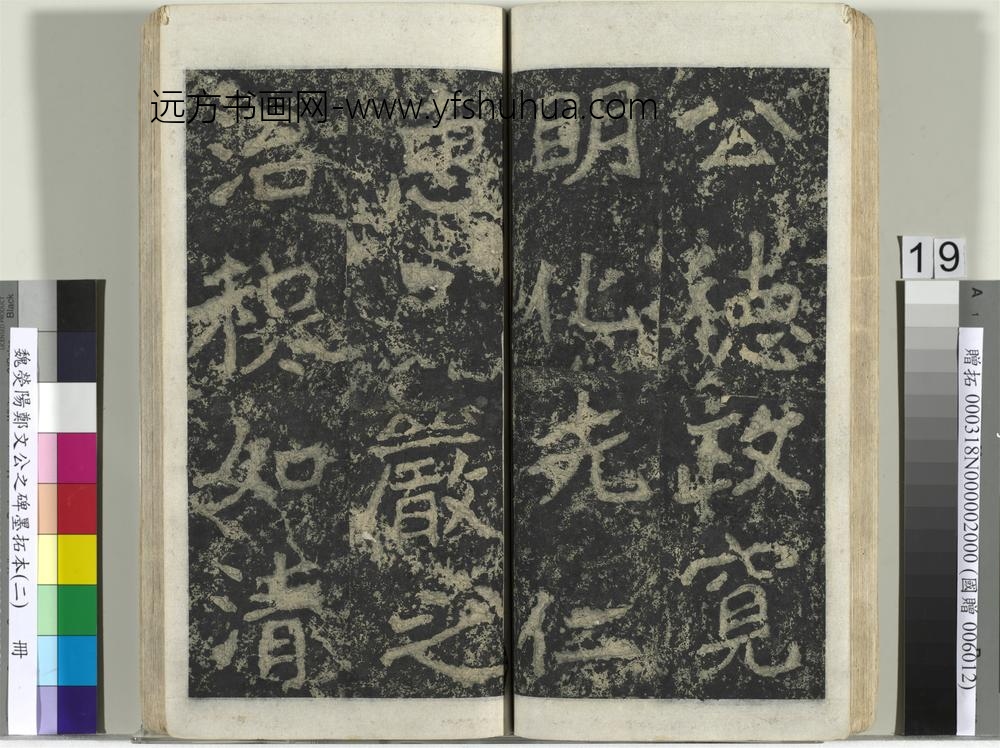 公德政寬
明化先仁
惠不嚴之
治穆如清
远方书画网-www.yfshuhua.com
19
魏滎陽鄭文公之碑墨拓本(二) 冊
贈拓 000318N000002000 (國贈 006012)
A 1